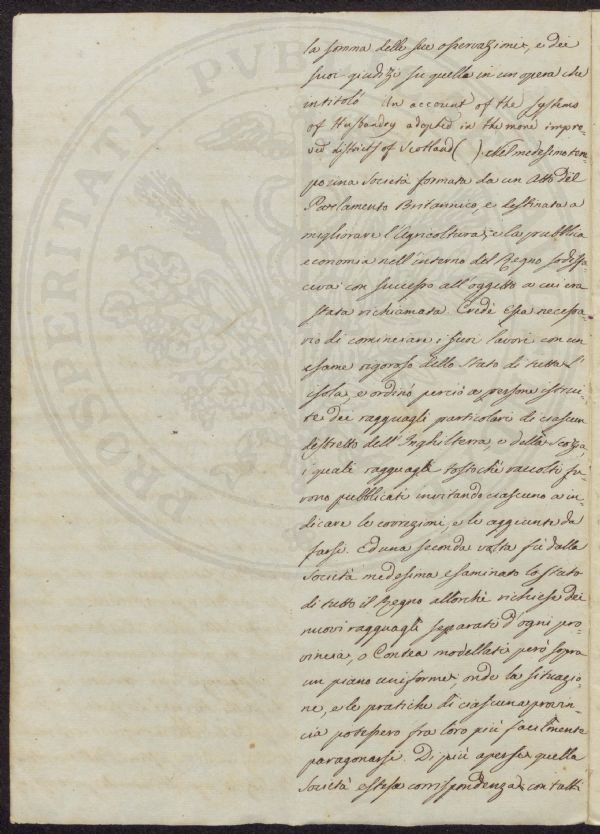 la somma delle sue osservazioni, e dei
suoi giudizi su quella in un opera che
intitolò An account of the systems
of Husbandry adopted in the more impro=
ved districts of Scotland ( ). Nel medesimo tem=
po una Società formata da un Atto del
Parlamento Britannico, e destinata a
migliorare l'Agricoltura, e la pubblica
economia nell'interno del Regno sodisfa=
ceva con successo all'oggetto a cui era
stata richiamata. Credè Essa necessa=
rio di cominciare i suoi lavori con un
esame rigoroso dello Stato di tutta l'
isola, e ordinò perciò a persone istrui=
te dei ragguagli particolari di ciascun
distretto dell'Inghilterra, e della Scozia,
i quali ragguagli tostochè raccolti fu=
rono pubblicati invitando ciascuno a in=
dicare le correzioni, e le aggiunte da
farsi. Ed una seconda volta fù dalla
Società medesima esaminato lo Stato
di tutto il Regno allorchè richiese dei
nuovi ragguagli separati d'ogni pro=
vincia, o Contea modellati però sopra
un piano uniforme, onde la situazio=
ne, e le pratiche di ciascuna provin=
cia potessero fra loro più facilmente
paragonarsi. Di più aperse quella
Società estesa corrispondenza con tutti
PROSPERITATI PUB